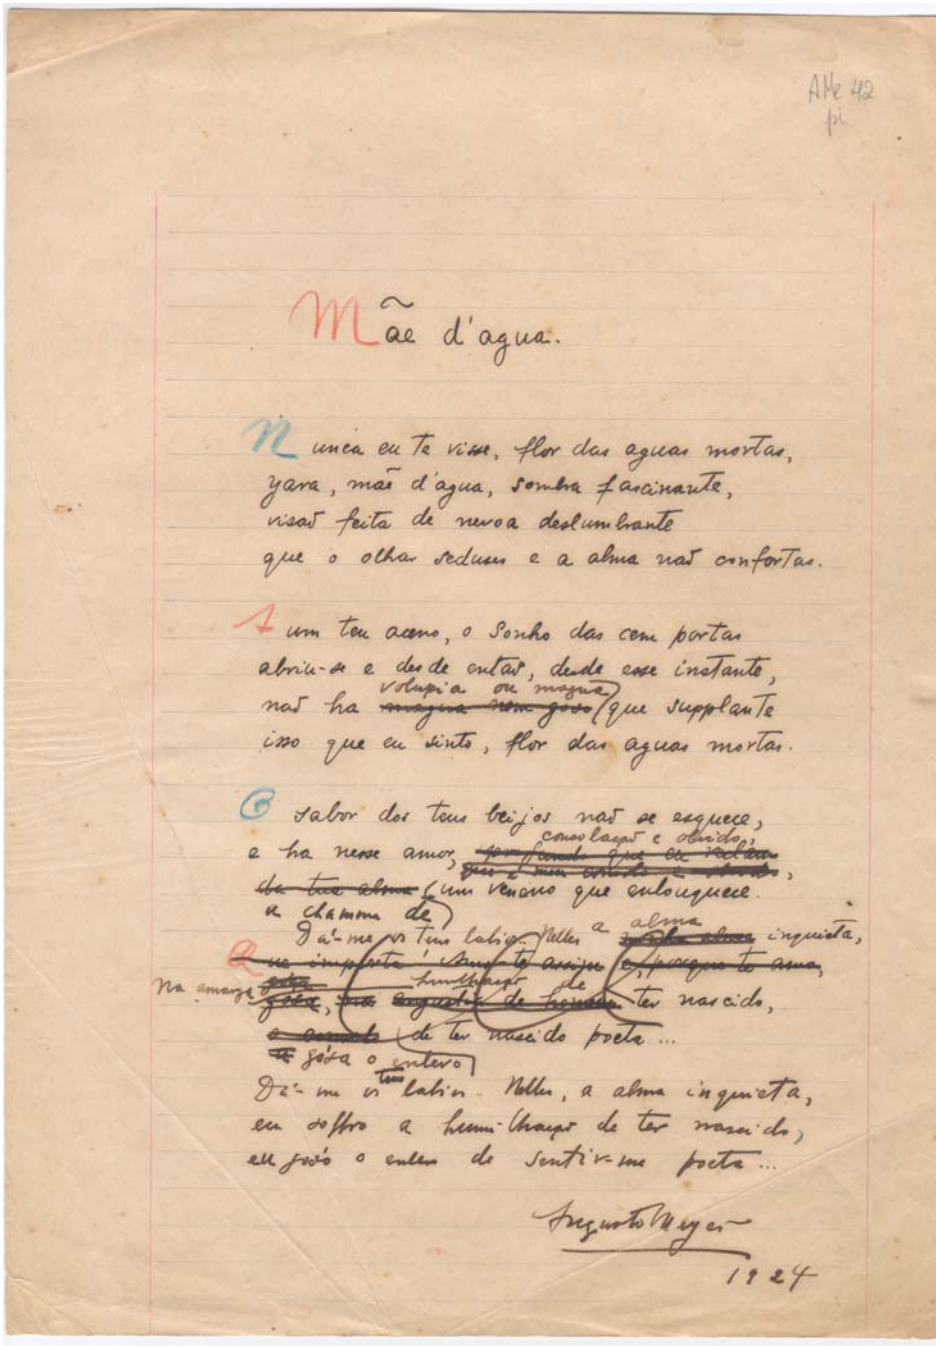 AMe 42
pi
Mãe d'agua.
Nunca eu te visse, flor das aguas mortas,
yara, mãe d'agua, sombra fascinante,
visaõ feita de nevoa deslumbrante
que o olhar seduses e a alma naõ confortas.
A um teu aceno, o Sonho das cem portas
abriu-se e desde entaõ, desde esse instante,
volupia ou magua
naõ ha magua nem goso que supplante
isso que eu sinto, flor das aguas mortas.
O sabor dos teus beijos naõ se esquece,
consolaçaõ e olvido,
e ha nesse amor, profundo que
da tua alma um veneno que enlouquece.
a chamma de
Dá-me os teus labios. Nelles a alma inquieta,
Que importa! e, porque te amo,
Na amarga humilhaçaõ de
angustia de ter nascido,
de ter nascido poeta...
gósa o enlevo
Dá-me os teus labios. Nelles, a alma inquieta,
eu soffro a humilhaçaõ de ter nascido,
eu góso o enlevo de sentir-me poeta...
Augusto Meyer
1924